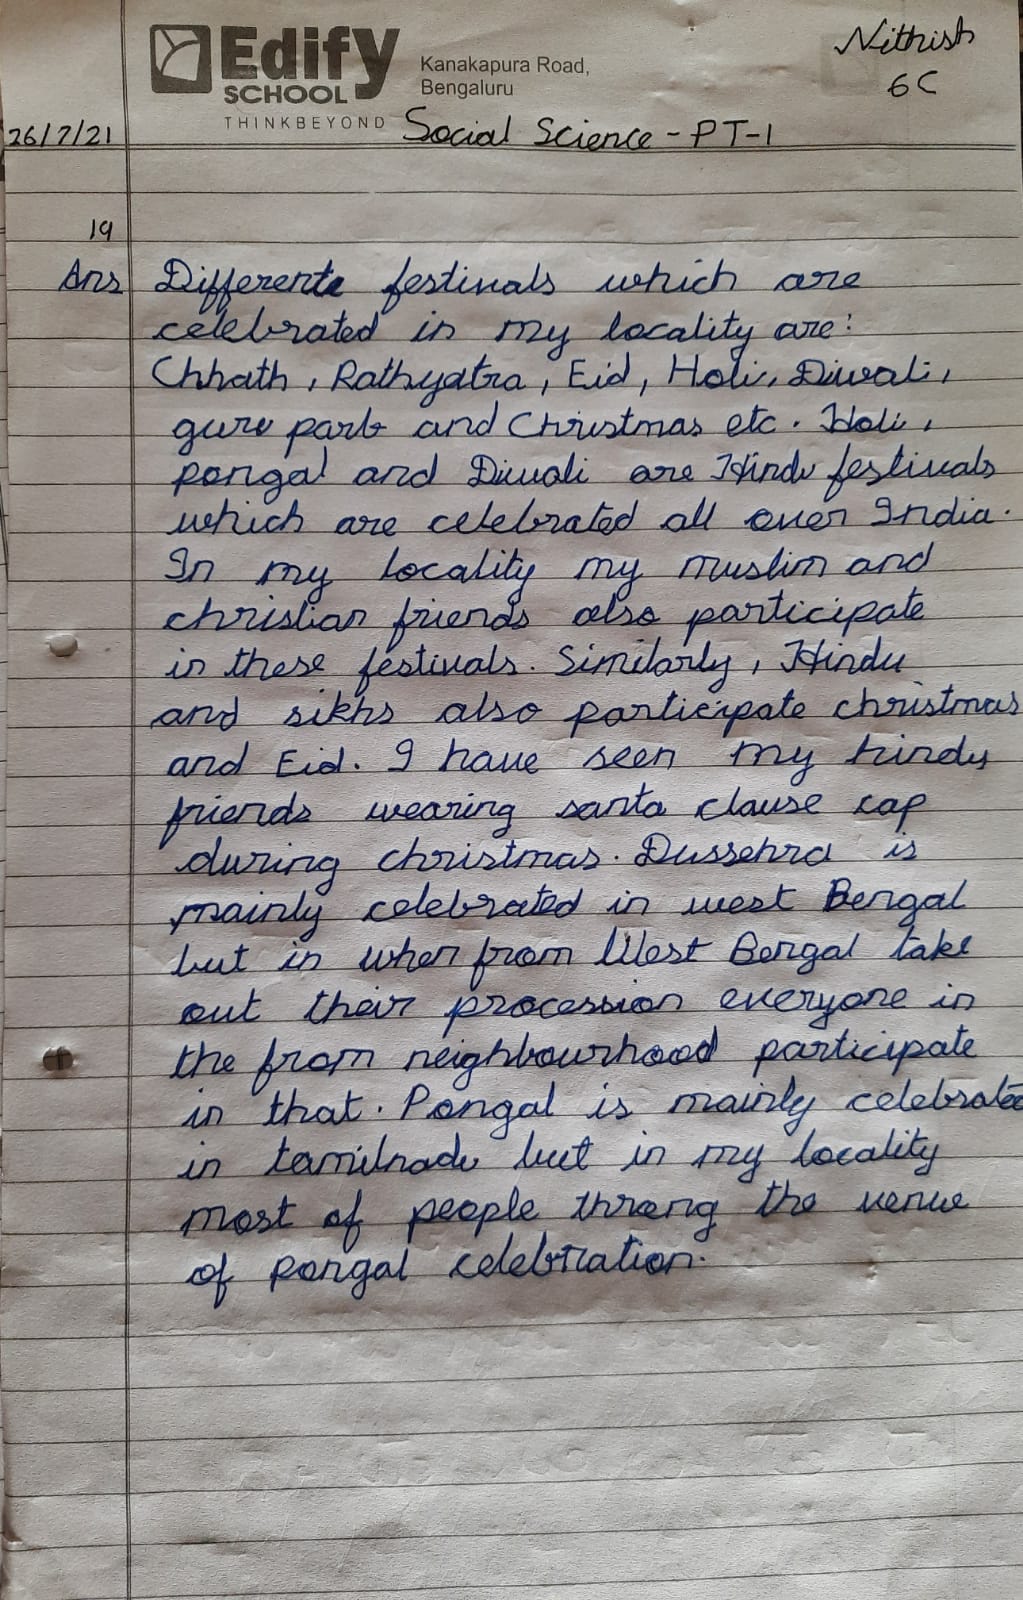 Edify
SCHOOL
THINKBEYOND
Kanakapura Road,
Bengaluru
Nithish
6C
26/7/21
Social Science - PT-1
19
Ans Differente festivals which are
celebrated in my locality are:
Chhath, Rathyatra, Eid, Holi, Diwali,
guru parb and Christmas etc. Holi,
pongal and Diwali are Hindu festivals
which are celebrated all over India.
In my locality my muslim and
christian friends also participate
in these festivals. Similarly, Hindu
and sikhs also participate christmas
and Eid. I have seen my hindu
friends wearing santa clause cap
during christmas. Dussehra is
mainly celebrated in west Bengal
but in when from West Bengal take
out their procession everyone in
the from neighbourhood participate
in that. Pongal is mainly celebrated
in tamilnadu but in my locality
most of people throng the venue
of pongal celebration.